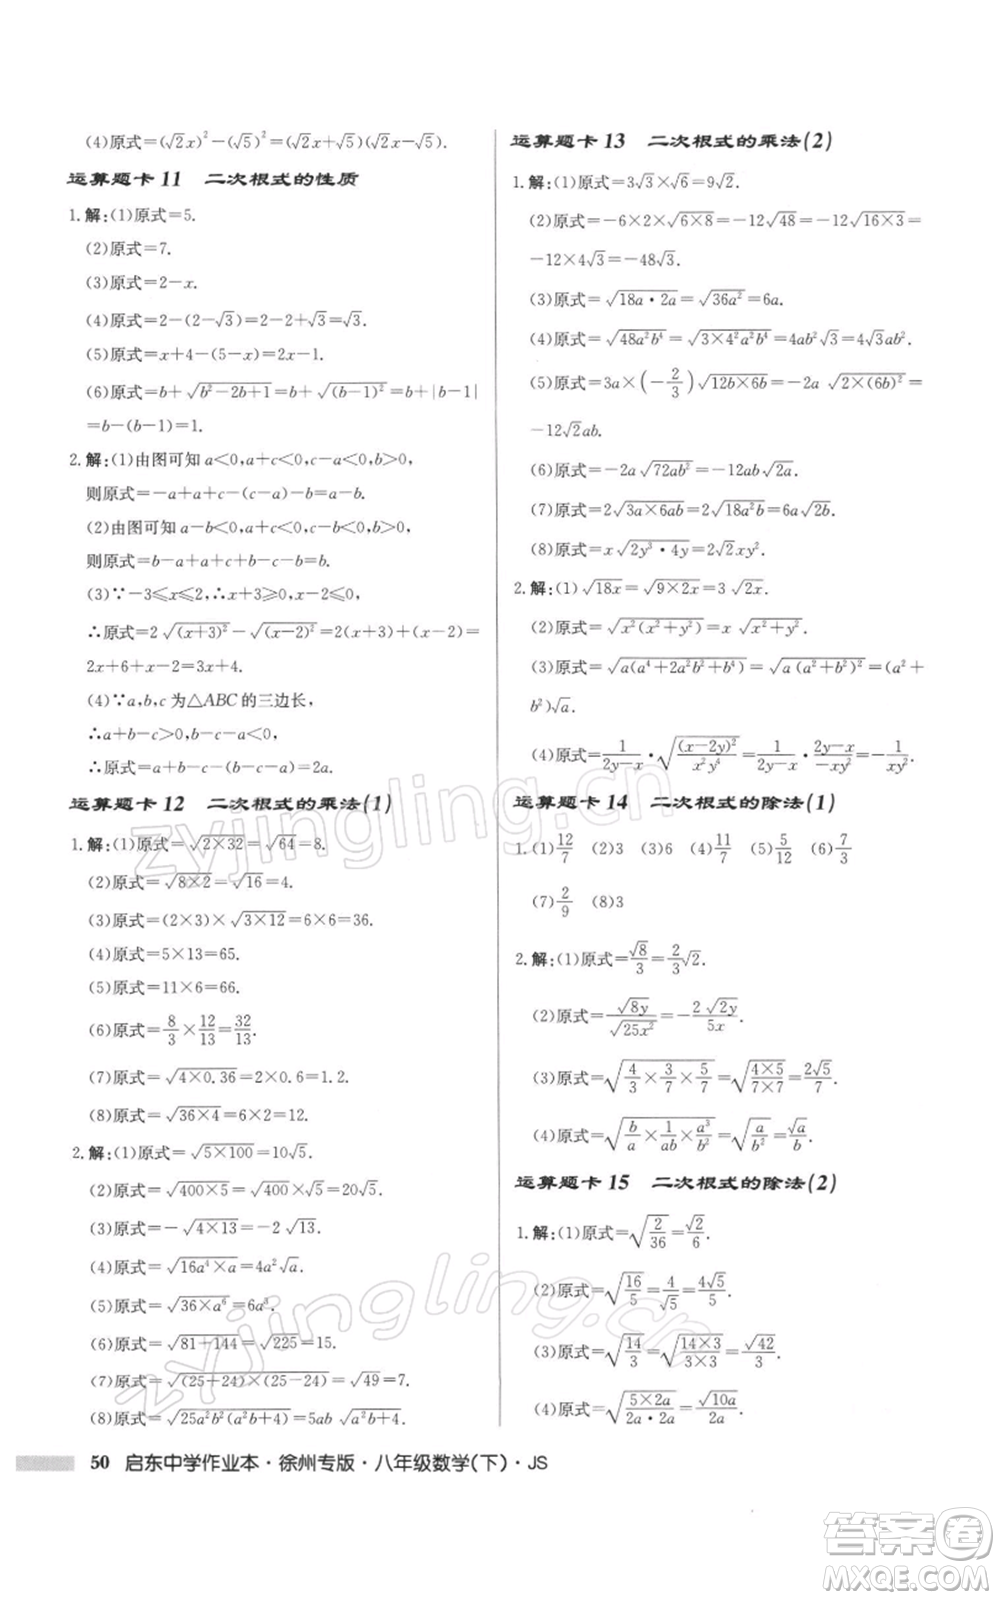 (4)原式=(√2x)²-(√5)²=(√2x+√5)(√2x-√5).
运算题卡 11 二次根式的性质
1.解:(1)原式=5.
(2)原式=7.
(3)原式=2-x.
(4)原式=2-(2-√3)=2-2+√3=√3.
(5)原式=x+4-(5-x)=2x-1.
(6)原式=b+√(b²-2b+1)=b+√((b-1)²)=b+|b-1|
=b-(b-1)=1.
2.解:(1)由图可知 a<0,a+c<0,c-a<0,b>0,
则原式=-a+a+c-(c-a)-b=a-b.
(2)由图可知 a-b<0,a+c<0,b-c>0,
则原式=b-a+a+c-(b-c)-b=b.
(3)∵-3≤x≤2,∴x+3≥0,x-2≤0,
∴原式=2√((x+3)²)-√((x-2)²)=2(x+3)+(x-2)=
2x+6+x-2=3x+4.
(4)∵a,b,c 为△ABC 的三边长,
∴a+b-c>0,b-c-a<0.
∴原式=a+b-c-(b-c-a)=2a.
运算题卡 12 二次根式的乘法(1)
1.解:(1)原式=√(2×32)=√64=8.
(2)原式=√(8×2)=√16=4.
(3)原式=(2×3)×√(3×12)=6×6=36.
(4)原式=5×13=65.
(5)原式=11×6=66.
(6)原式=8/3×12/13=32/13.
(7)原式=√(4×0.36)=2×0.6=1.2.
(8)原式=√(36×4)=6×2=12.
2.解:(1)原式=√(5×100)=10√5.
(2)原式=√(400×5)=√400×√5=20√5.
(3)原式=-√(4×13)=-2√13.
(4)原式=√(16a⁴×a)=4a²√a.
(5)原式=√(36×a⁶)=6a³.
(6)原式=√(81+144)=√225=15.
(7)原式=√((25+24)×(25-24))=√49=7.
(8)原式=√(25a²b²(a²b+4))=5ab√(a²b+4).
运算题卡 13 二次根式的乘法(2)
1.解:(1)原式=3√3×√6=9√2.
(2)原式=-6×2×√(6×8)=-12√48=-12√(16×3)=
-12×4√3=-48√3.
(3)原式=√(18a·2a)=√(36a²)=6a.
(4)原式=√(48a²b⁴)=√(3×4²a²b⁴)=4ab²√3=4√3ab².
(5)原式=3a×(-2/3)√(12b×6b)=-2a√(2×(6b)²)=
-12√2ab.
(6)原式=-2a√(72ab²)=-12ab√(2a).
(7)原式=2√(3a×6ab)=2√(18a²b)=6a√(2b).
(8)原式=x√(2y³·4y)=2√2xy².
2.解:(1)√(18x)=√(9×2x)=3√(2x).
(2)原式=√(x²(x²+y²))=x√(x²+y²).
(3)原式=√(a(a⁴+2a²b²+b⁴))=√(a(a²+b²)²)=(a²+
b²)√a.
(4)原式=1/(2y-x)·√((x-2y)²/(x²y⁴))=1/(2y-x)·(2y-x)/(-xy²)=-1/(xy²).
运算题卡 14 二次根式的除法(1)
1.(1)12/7 (2)3 (3)6 (4)11/7 (5)5/12 (6)7/3
(7)2/9 (8)3
2.解:(1)原式=√8/3=2/3√2.
(2)原式=√(8y)/√(25x²)=-2√(2y)/5x.
(3)原式=√(4/3×3/7×5/7)=√((4×5)/(7×7))=2√5/7.
(4)原式=√(b/a×1/ab×a³/b²)=√(a/b²)=√a/b.
运算题卡 15 二次根式的除法(2)
1.解:(1)原式=√(2/36)=√2/6.
(2)原式=√(16/5)=4/√5=4√5/5.
(3)原式=√(14/3)=√((14×3)/(3×3))=√42/3.
(4)原式=√((5×2a)/(2a·2a))=√(10a)/2a.
50 启东中学作业本·徐州专版·八年级数学(下)·JS
zyjingling.cn
zyjingling.cn
答案卷
MXQE.COM